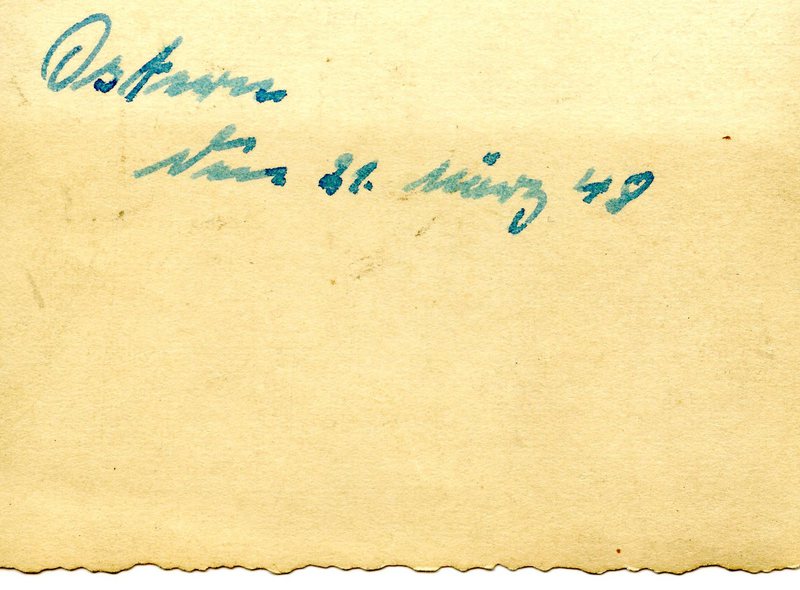 Ostern
den 21. März 48